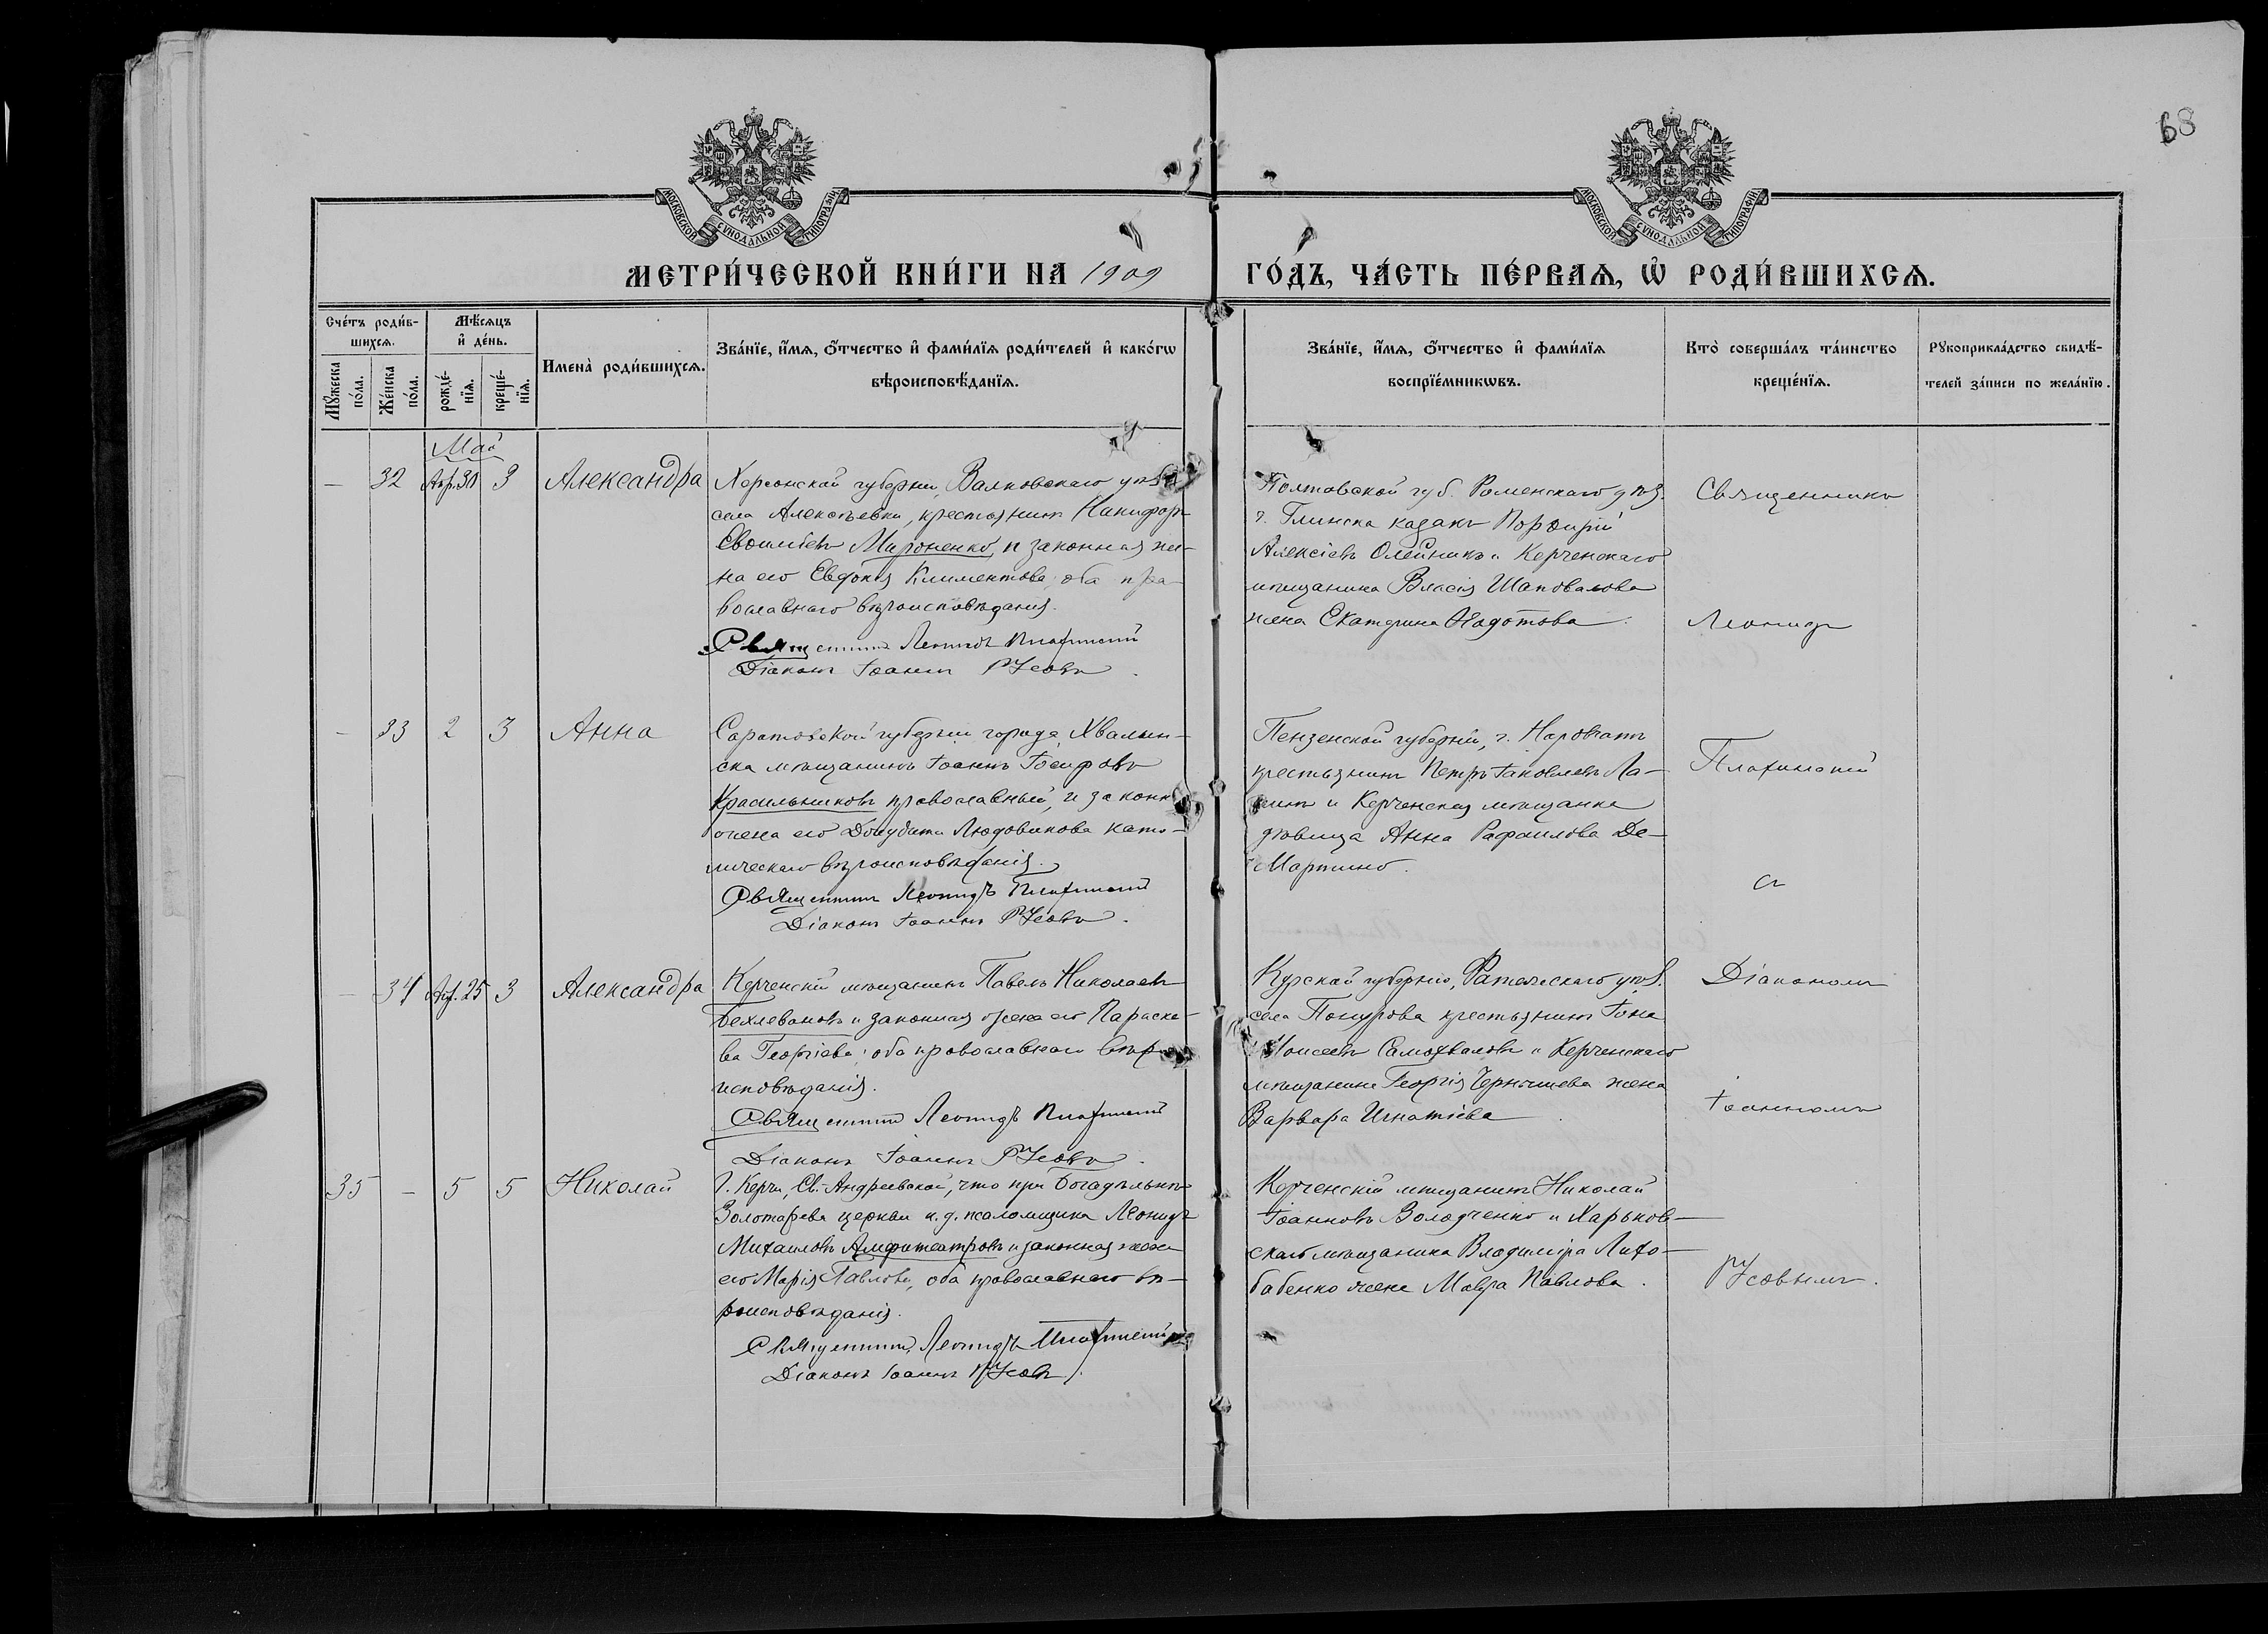 68
МОСКОВСКОЙ СУНОДАЛЬНОЙ ТИПОГРАФІИ
МОСКОВСКОЙ СУНОДАЛЬНОЙ ТИПОГРАФІИ
МЕТРИ́ЧЕСКОЙ КНИ́ГИ НА 1909 ГО́ДЪ, ЧА́СТЬ ПЕ́РВАѦ, Ѡ҆ РОДИ́ВШИХСѦ.
Сче́тъ роди́в-
шихсѧ.
Мꙋ́жеска по́ла.
Же́нска по́ла.
Мѣ́сѧцъ
и҆ де́нь.
рожде́-
нїѧ.
креще́-
нїѧ.
Имена̀ роди́вшихсѧ.
Зва́нїе, и҆́мѧ, ѻ҆́тчество и҆ фами́лїѧ роди́телей и҆ како́гѡ
вѣроисповѣ́данїѧ.
Зва́нїе, и҆́мѧ, ѻ҆́тчество и҆ фами́лїѧ
воспрїе́мникѡвъ.
Кто̀ соверша́лъ та́инство
креще́нїѧ.
Рꙋкоприкла́дство свидѣ́-
телей за́писи по жела́нїю.
Май
— 32 Апр. 30 3 Александра
Херсонской губерніи, Валковскаго уѣз.
села Алексѣевки, крестьянинъ Никифоръ
Мироненко и законная же-
на его Евдокія Климентова, оба пра-
вославнаго вѣроисповѣданія.
Священникъ Леонидъ
Діаконъ Іоаннъ Русовъ.
Полтавской губ. Роменскаго уѣз.
г. Глинска казакъ Порфирій
Алексіевъ Олейникъ и Керченскаго
мѣщанина Власія Шаповалова
жена Екатерина
— 33 2 3 Анна
Саратовской губерніи города Хвалын-
ска мѣщанинъ Іоаннъ Іосифовъ
Красильниковъ православный, и законн
жена его Людовикова като-
лическаго вѣроисповѣданія.
Священникъ Леонидъ
Діаконъ Іоаннъ Русовъ.
Пензенской губерніи, г. Наровчатъ
крестьянинъ Петръ Іаковлевъ Ла-
и Керченская мѣщанка
дѣвица Анна Рафаилова Де-
Мартино.
— 34 Апр. 25 3 Александра
Керченскій мѣщанинъ Павелъ Николаевъ
Бехлевановъ и законная жена его Параске-
ва Георгіева; оба православнаго вѣро
исповѣданія.
Священникъ Леонидъ
Діаконъ Іоаннъ Русовъ.
Курской губерніи, Фатежскаго уѣз.
села крестьянинъ Іона
Моисеевъ Самохваловъ и Керченскаго
мѣщанина Георгія Чернышева жена
Варвара Игнатіева.
35 — 5 5 Николай
Г. Керчи, Св.-Андреевской, что при богадѣльнѣ
Золотарева церкви и. д. псаломщика Леонидъ
Михаиловъ Амфитеатровъ и законная жена
его Марія Павлова, оба православнаго вѣ-
роисповѣданія.
Священникъ Леонидъ
Діаконъ Іоаннъ Русовъ.
Керченскій мѣщанинъ Николай
Іоанновъ Володченко и Харьков-
скаго мѣщанина Владиміра Лихо-
бабенко жена Мавра Павлова.
Священникъ
Леонидъ
съ
Діакономъ
Іоанномъ
Русовымъ.